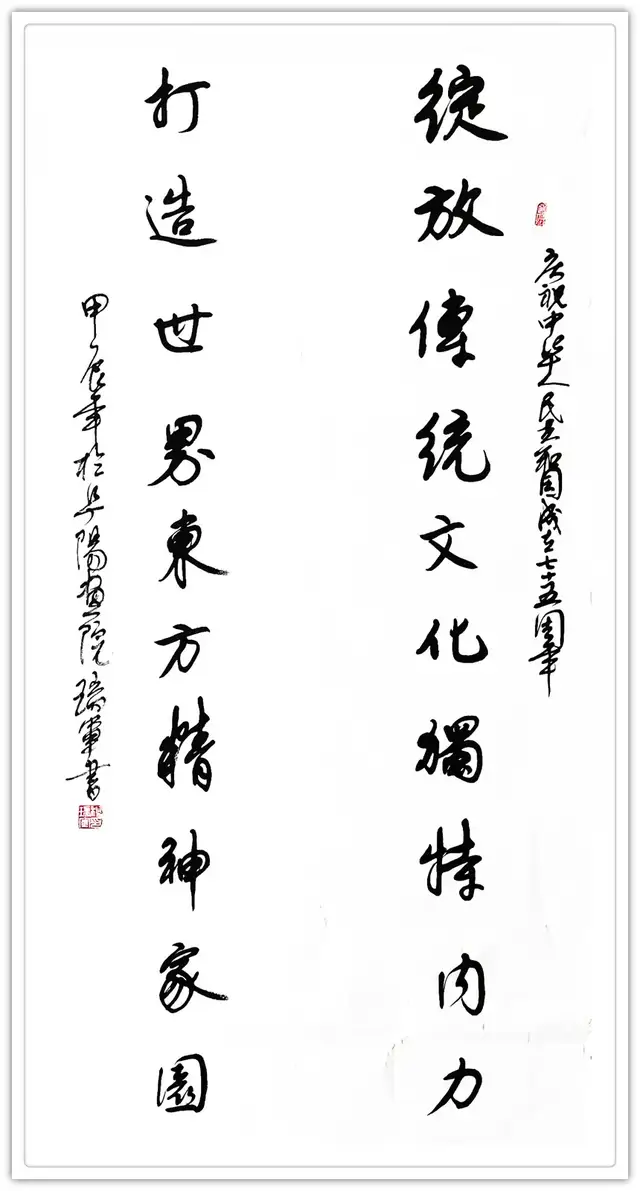 庆祝中华人民共和国成立七十五周年
綻放傳統文化獨特内力
打造世界東方精神家園
甲辰年於阜陽畫院瑞軍書